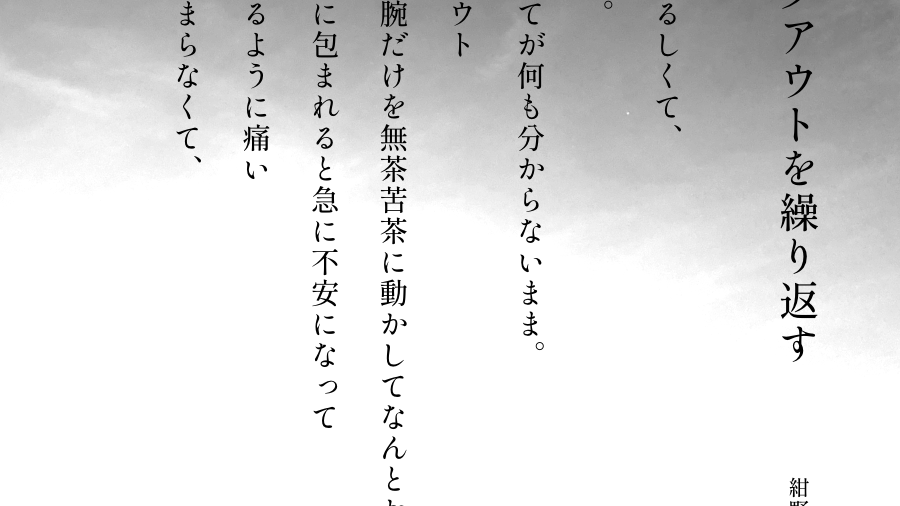 アウトを繰り返す
紺
るしくて、
。
てが何も分からないまま。
ウト
腕だけを無茶苦茶に動かしてなんと
に包まれると急に不安になって
るように痛い
まらなくて、